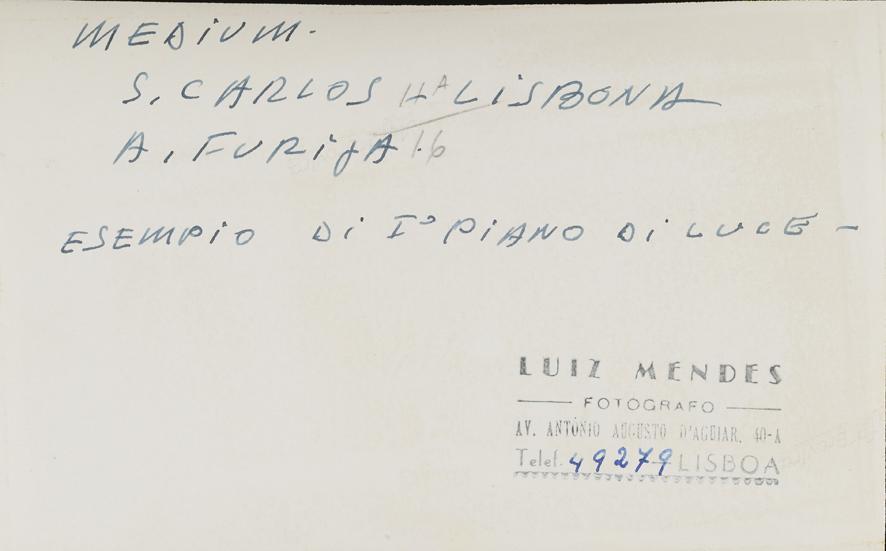 MEDIUM.
S. CARLOS HA LISBONA
A. FURIJA 16
ESEMPIO DI Iº PIANO DI LUCE -
LUIZ MENDES
FOTOGRAFO
AV. ANTÓNIO AUGUSTO D'AGUIAR, 40-A
Telef. 49279 LISBOA